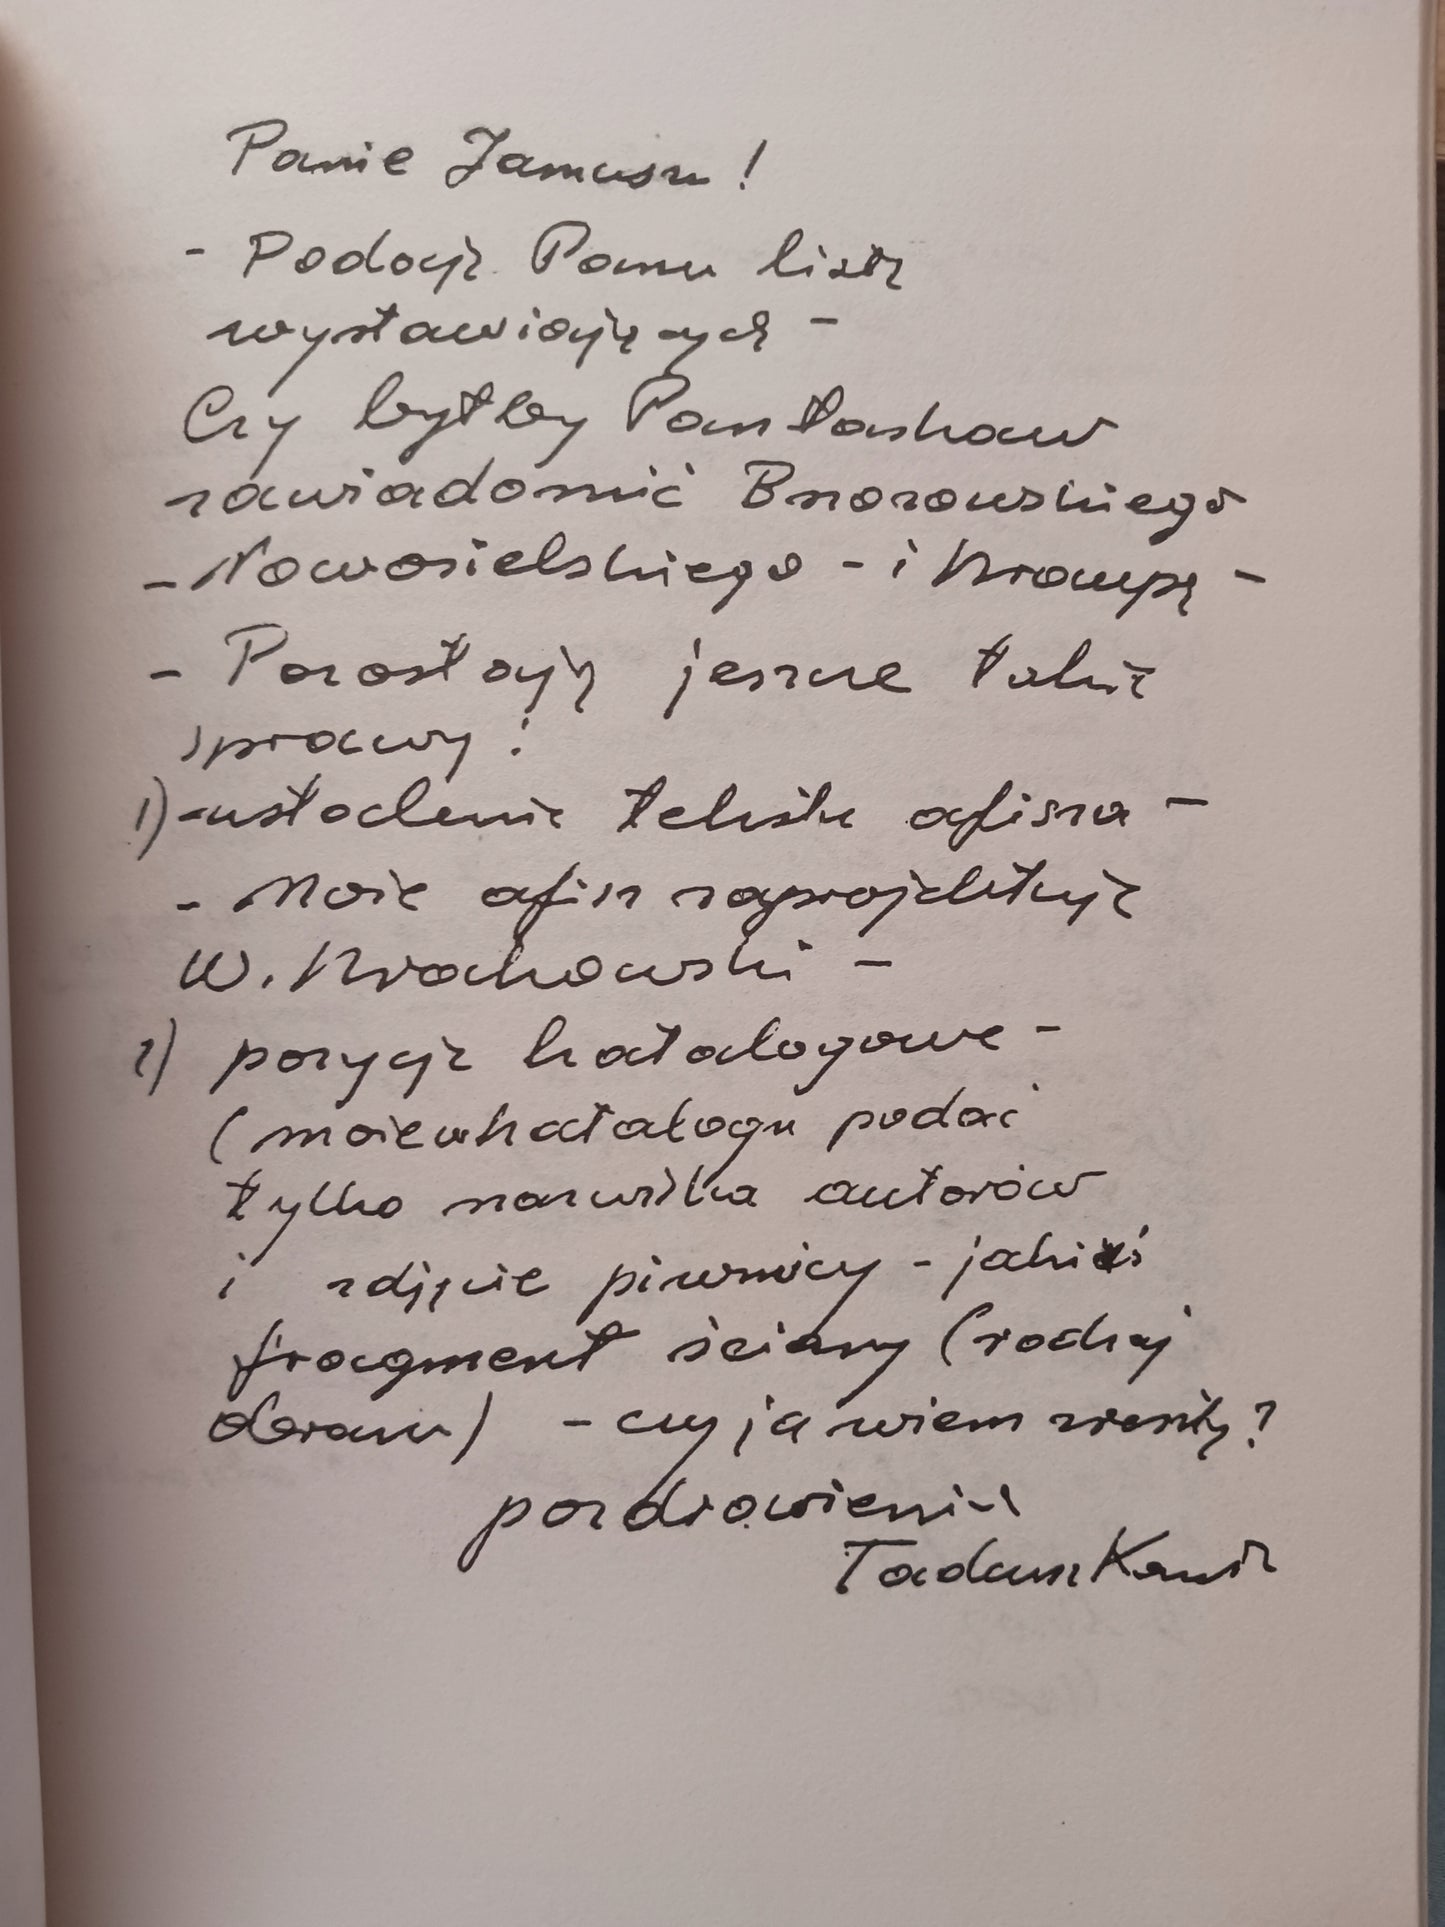 Panie Januszu!
- Podaję Panu listę
wystawiających -
Czy byłby Pan łaskaw
zawiadomić Brzozowskiego
- Nowosielskiego - i Kraupę -
- Pozostają jeszcze takie
sprawy:
1) - ustalenie tekstu afisza -
- Może afisz zaprojektuje
W. Krakowski -
2) pozycje katalogowe -
(może w katalogu podać
tylko nazwiska autorów
i zdjęcie piwnicy - jakiś
fragment ściany (rodzaj
obrazu) - czy ja wiem zresztą?
pozdrowienia
Tadeusz Kantor